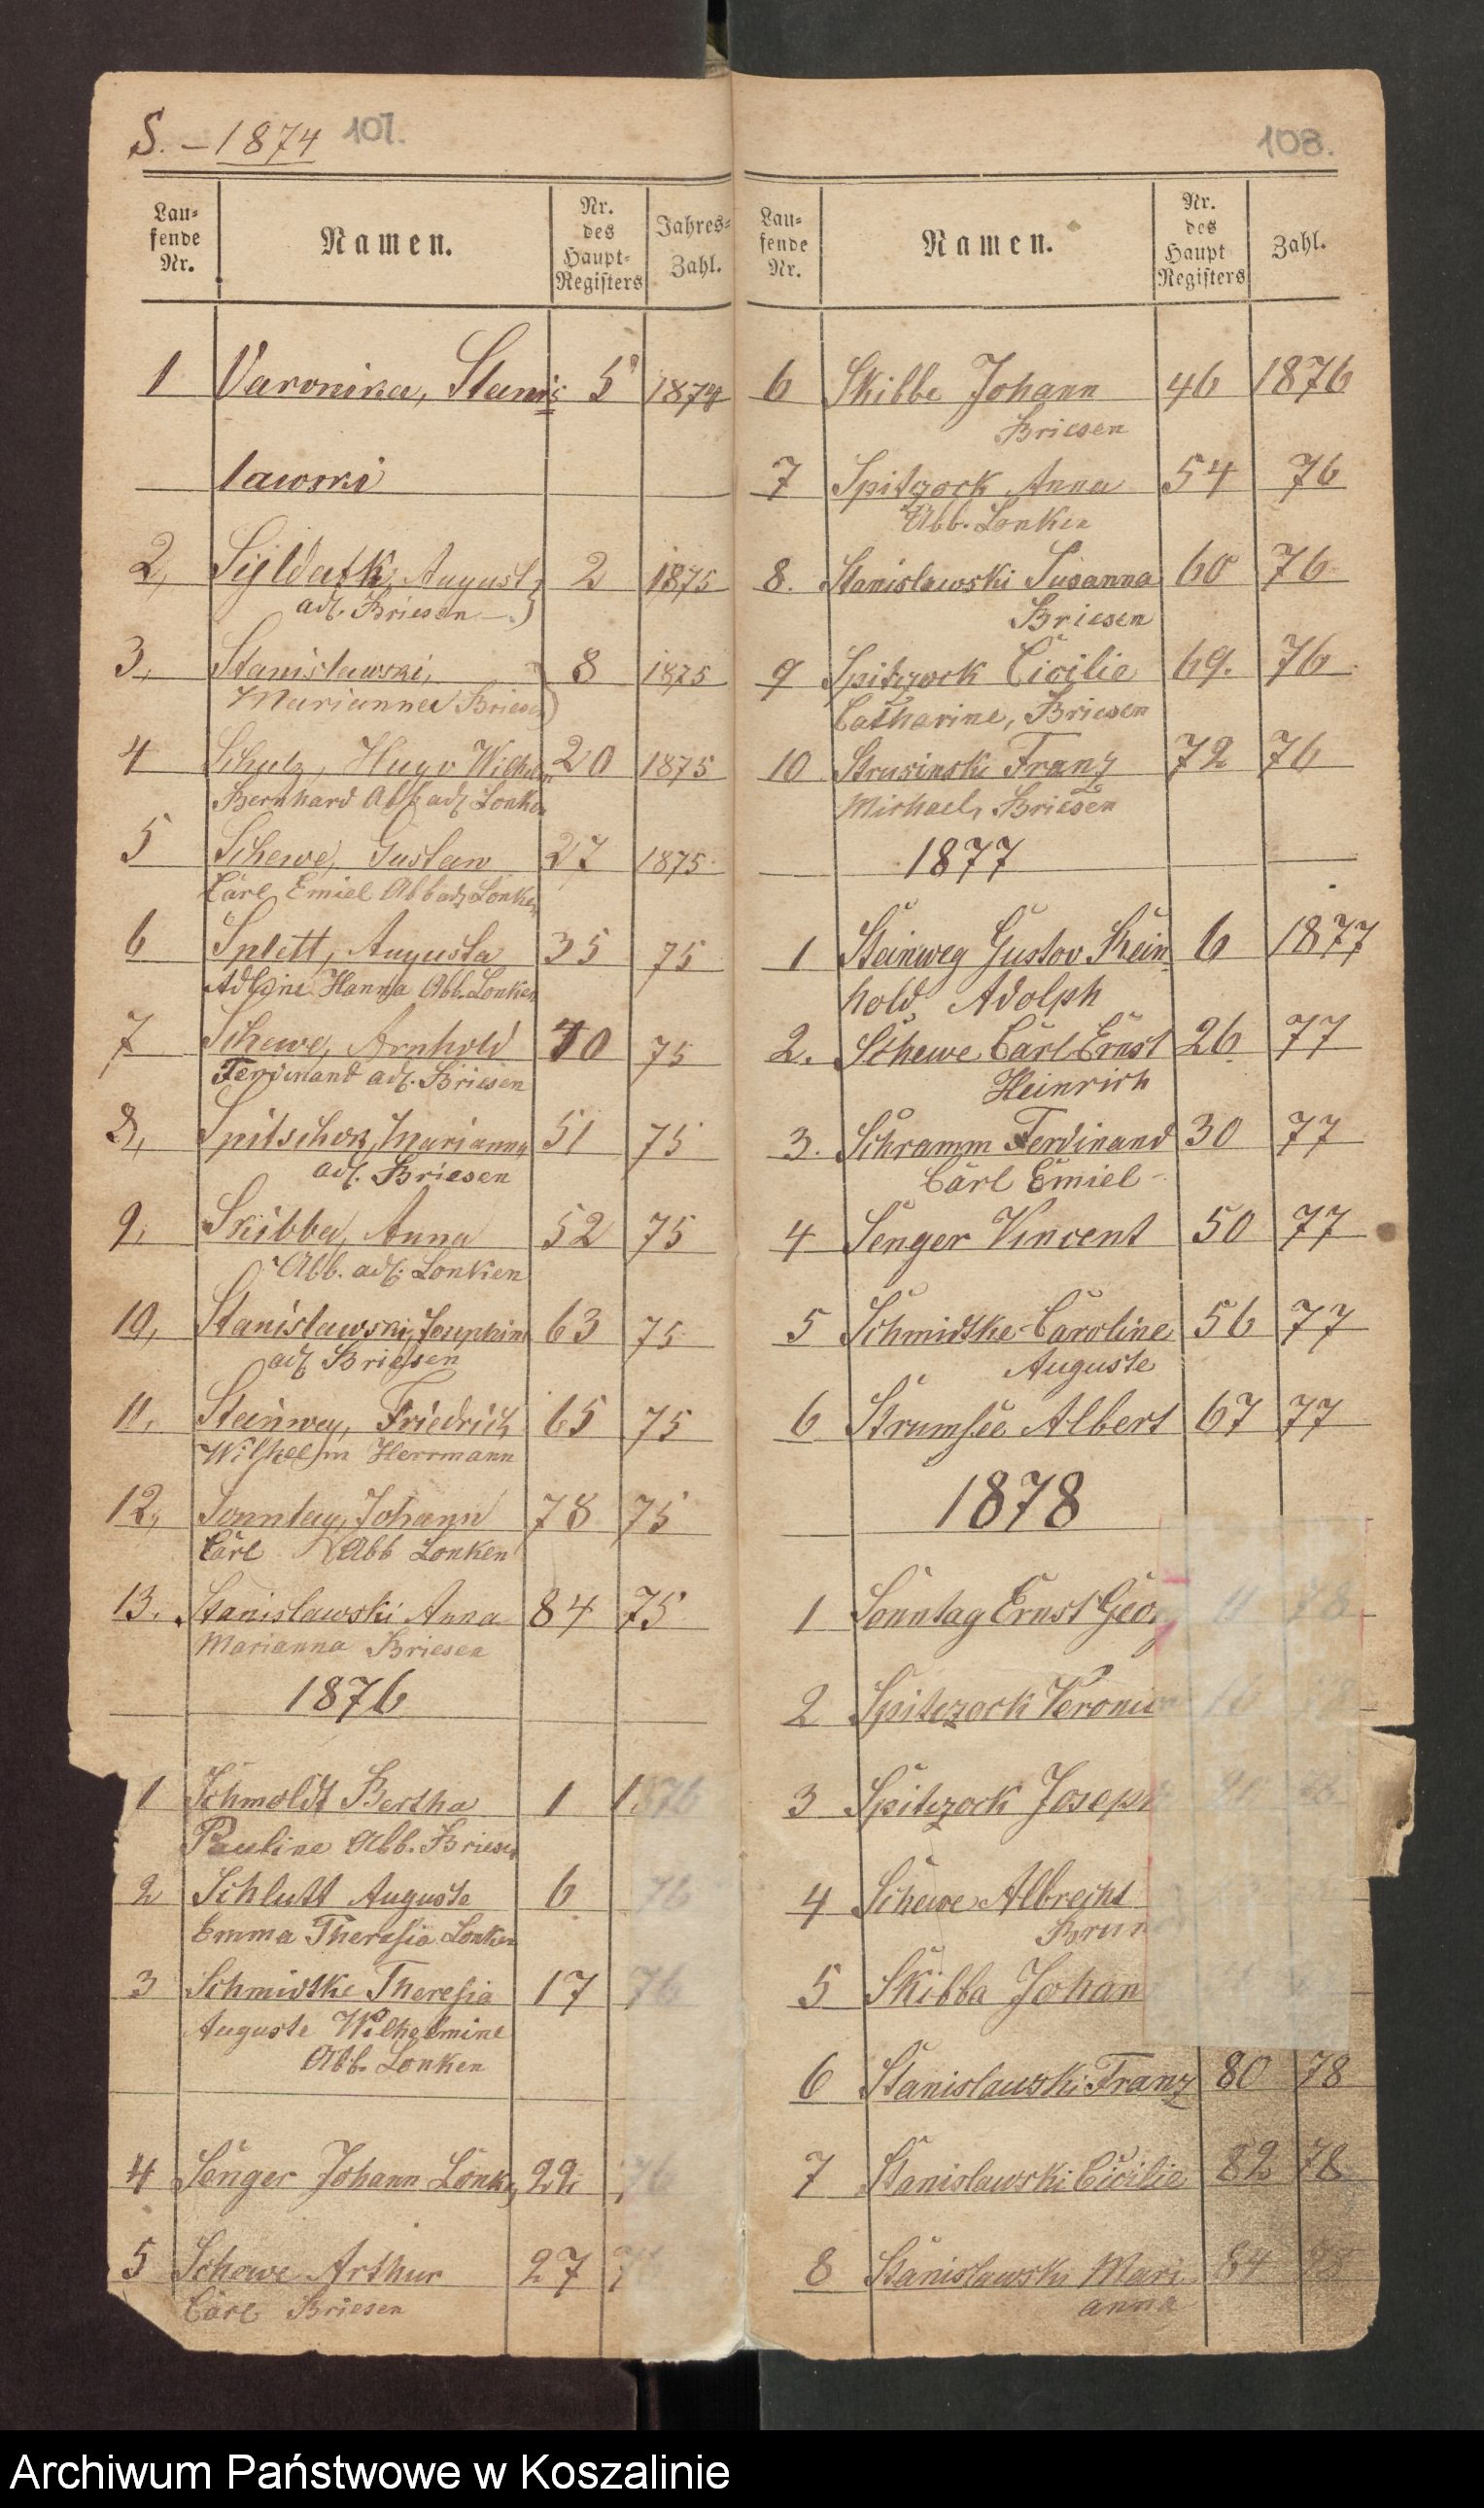 S. – 1874 107.
Lau=
fende
Nr.
Namen.
Nr.
des
Haupt=
Registers
Jahres=
Zahl.
1 Varonika, Stanis 5 1874
lawski
2, Syldatk, August 2 1875
adl. Briesen
3, Stanislawski, 8 1875
Marianna Briesen
4 Schulz, Hugo Wilhelm 20 1875
Bernhard Abb adl Lonken
5 Schewe, Gustaw 27 1875
Carl Emiel Abb adl Lonken
6 Splett, Augusta 35 75
Hanna Abb. Lonken
7 Schewe, Arnhold 40 75
Ferdinand adl. Briesen
8, Spitschok, Marianna 51 75
adl. Briesen
9, Skibba, Anna 52 75
Abb. adl. Lonken
10, Stanislawski, Josephine 63 75
adl Briesen
11, Steinweg, Friedrich 65 75
Wilhelm Herrmann
12, Sonntag, Johann 78 75
Carl Abb Lonken
13. Stanislawski Anna 84 75
Marianna Briesen
1876
1 Schmoldt Bertha 1 1876
Pauline Abb. Briesen
2 Schlutt Auguste 6 76
Emma Theresia Lonken
3 Schmidtke Theresia 17 76
Auguste Wilhelmine
Abb. Lonken
4 Senger Johann Lonken 22 76
5 Schewe Arthur 27
Carl Briesen
108.
Lau=
fende
Nr.
Namen.
Nr.
des
Haupt
Registers
Zahl.
6 Skibbe Johann 46 1876
Briesen
7 Spitzock Anna 54 76
Abb. Lonken
8. Stanislawski Susanna 60 76
Briesen
9 Spitzock Cicilie 69. 76
Catharine, Briesen
10 Strusinski Franz 72 76
Michael, Briesen
1877
1 Steinweg Gustov Rein 6 1877
hold Adolph
2. Schewe Carl Ernst 26 77
Heinrich
3. Schramm Ferdinand 30 77
Carl Emiel
4 Senger Vincent 50 77
5 Schmidtke Caroline 56 77
Auguste
6 Strumsee Albert 67 77
1878
1 Sonntag Ernst Geor 11 78
2 Spitczock Veronica 78
3 Spitczock Joseph
4 Schewe Albrecht
Brun
5 Skibba Johan
6 Stanislauski Franz 80 78
7 Stanislawski Cicilie 82 78
8 Stanislawski Mari 84 78
anna
Archiwum Państwowe w Koszalinie